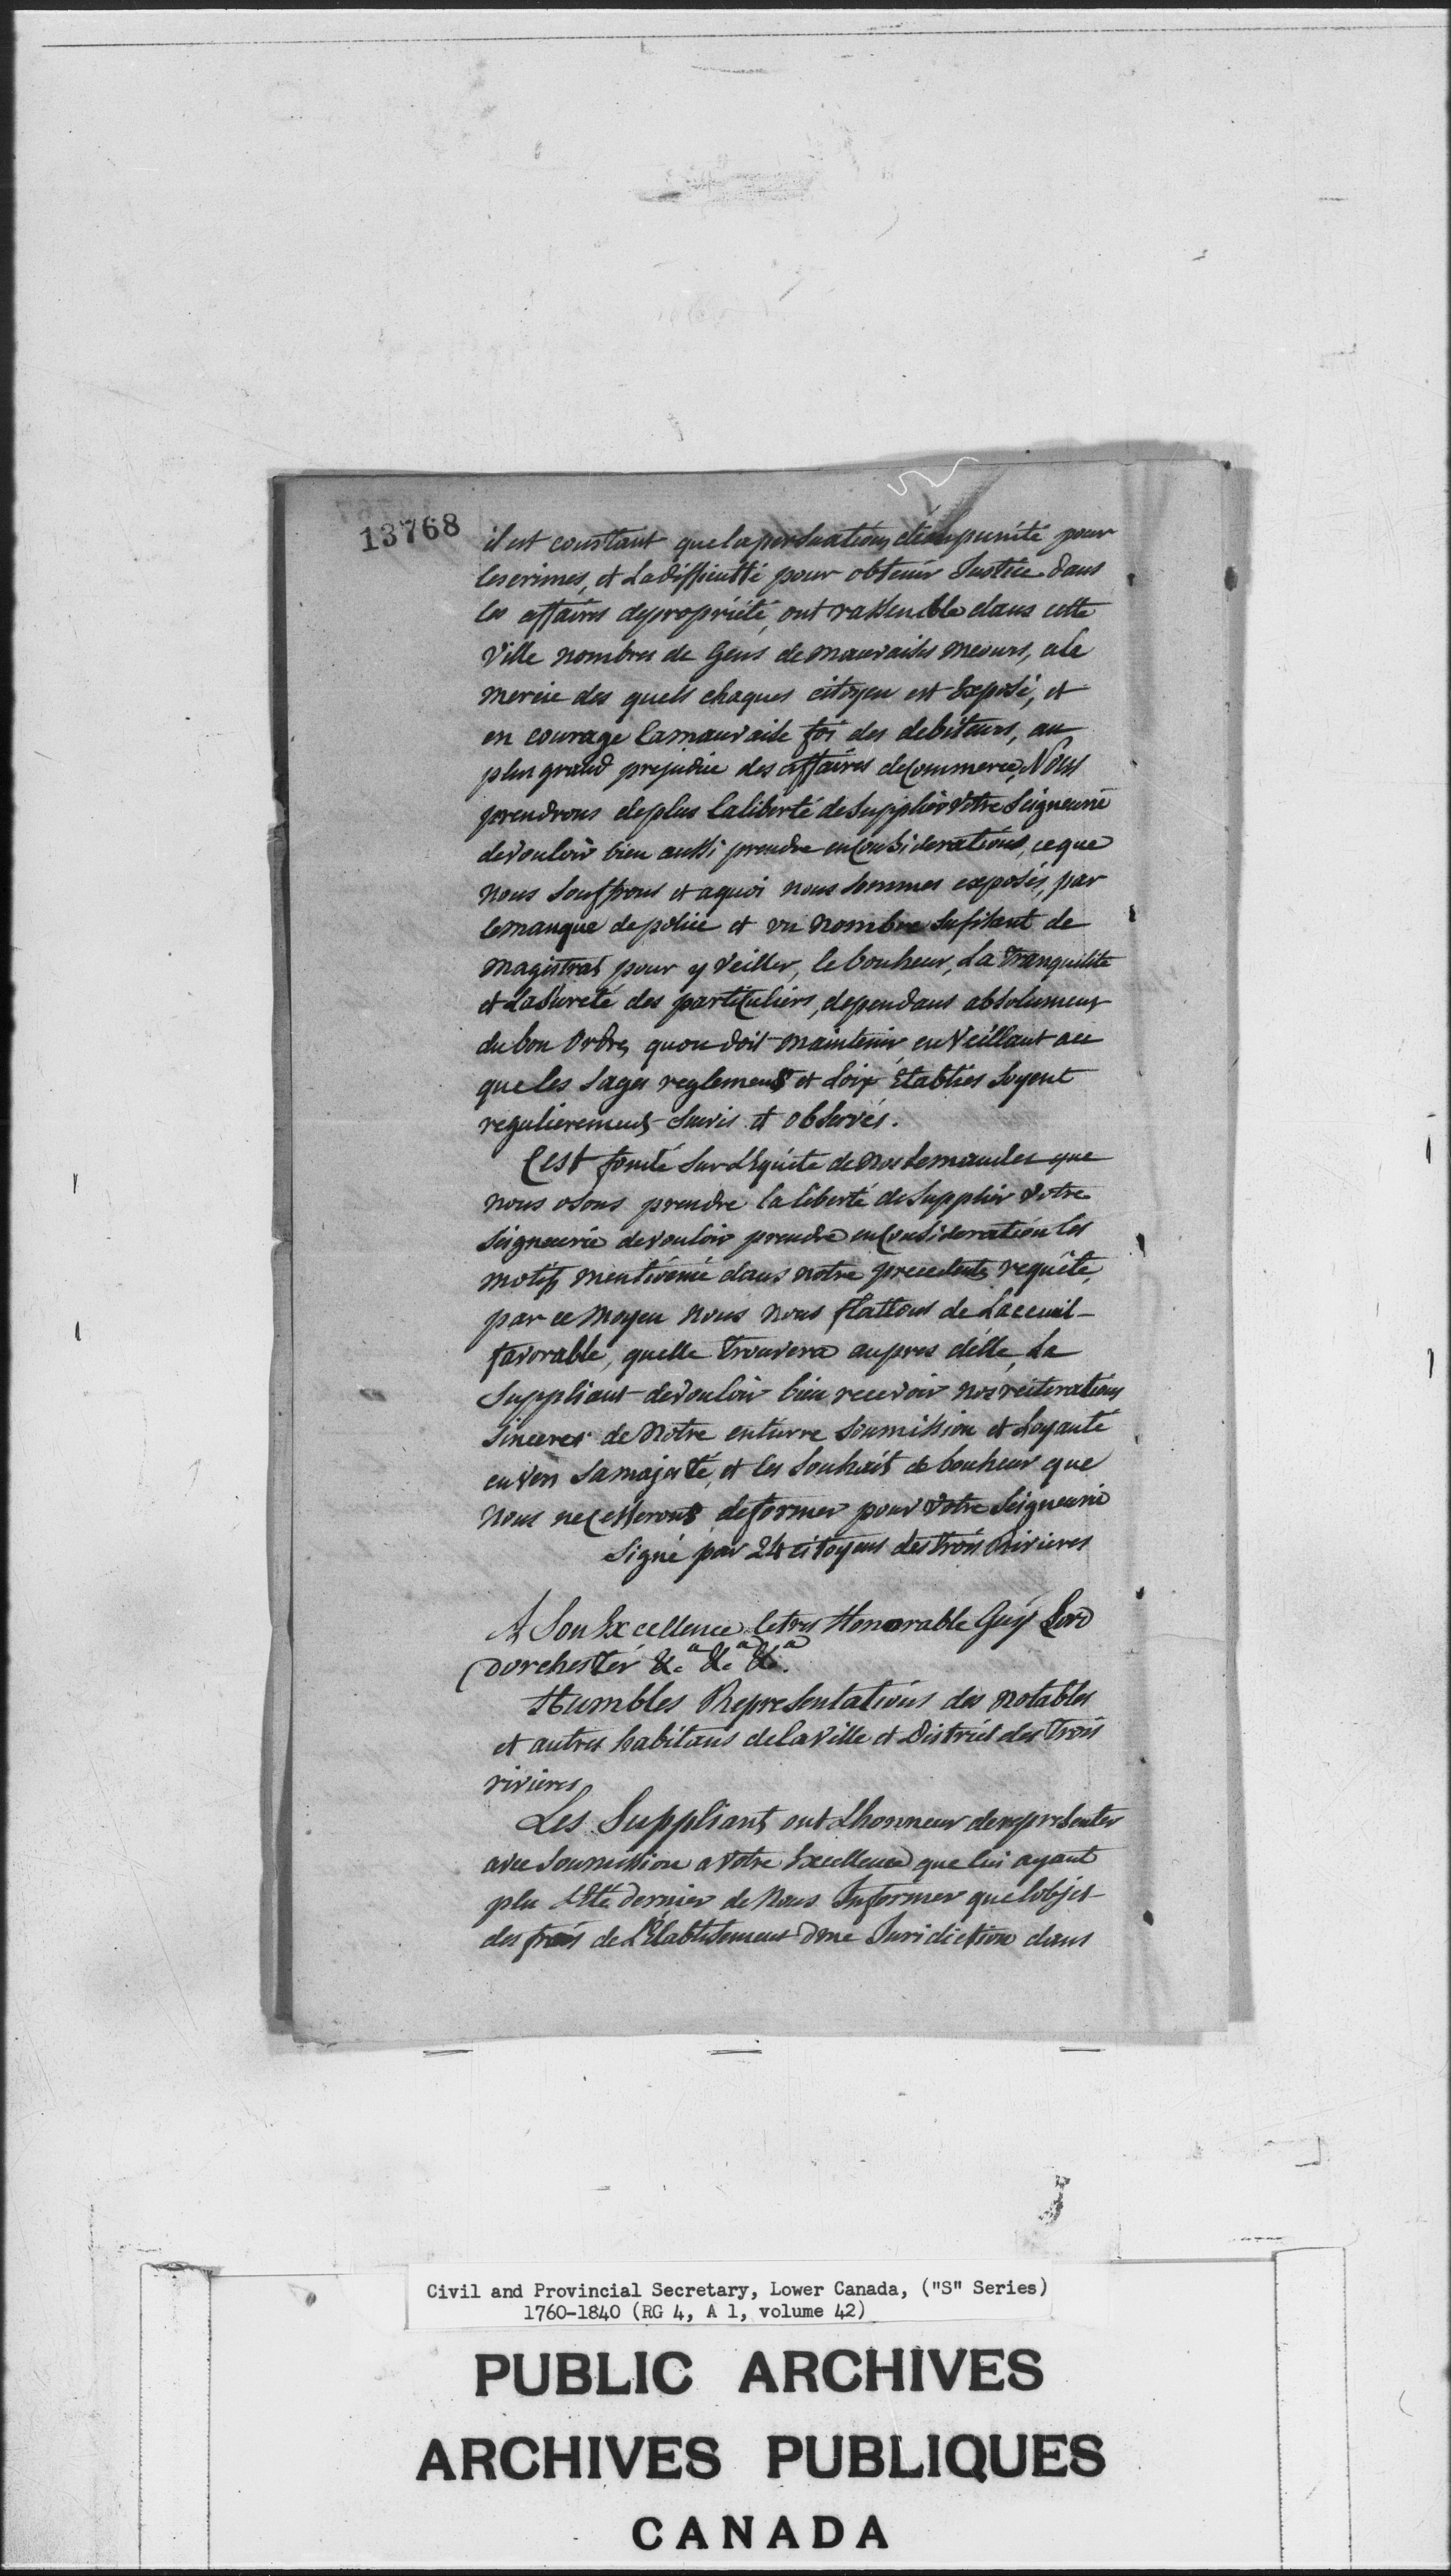 13768
il est constant que la persuation d'impunité pour
les crimes, et la difficulté pour obtenir Justice dans
les affaires de propriété, ont rassemblé dans cette
Ville nombres de Gens de mauvaises meours, a la
mercie des quels chaques citoyen est Exposé, et
en courage la mauvaise foi des debiteurs, au
plus grand prejudice des affaires de Commerce, Nous
prendrons de plus la liberté de Supplier Votre Seigneurie
de vouloir bien aussi prendre en Considerations, ce que
nous Souffrons et a quoi nous Sommes exposés, par
le manque de police et un Nombre Sufisant de
Magistrats pour y Veiller, le bonheur, La Tranquilité
et La Sureté des particuliers, dependans absolument
du bon Ordre, quon doit maintenir en Veillant a ce
que les Sages reglements et Loix Etablies Soyent
regulierement Suivis et observés.
C'est fondé Sur L'Equité de Nos demandes que
nous osons prendre la liberté de Supplier Votre
Seigneurie de vouloir prendre en Consideration les
motifs mentionné dans notre precedente requête,
par ce moyen nous nous flattons de Laceuil
favorable, quelle Trouvera aupres d'elle, La
Suppliant de vouloir bien recevoir nos reiterations
Sinceres de Notre entierre Soumission et Loyauté
en vers Sa majesté, et les Souhait de bonheur que
Nous ne Cesserons de former pour Votre Seigneurie
Signé par 24 citoyens des Trois Rivieres
A Son Excellence le tres Honorable Guy Lord
Dorchester &.a &.a &.a
Humbles Representations des notables
et autres habitans de la Ville et District des Trois
rivieres
Les Suppliants ont L'honneur de representer
avec Soumission a Votre Excellence que lui ayant
plu L'Eté dernier de Nous Informer que l'objet
des frais de L'Etablissement d'une Juridiction dans
Civil and Provincial Secretary, Lower Canada, ("S" Series)
1760-1840 (RG 4, A 1, volume 42)
PUBLIC ARCHIVES
ARCHIVES PUBLIQUES
CANADA